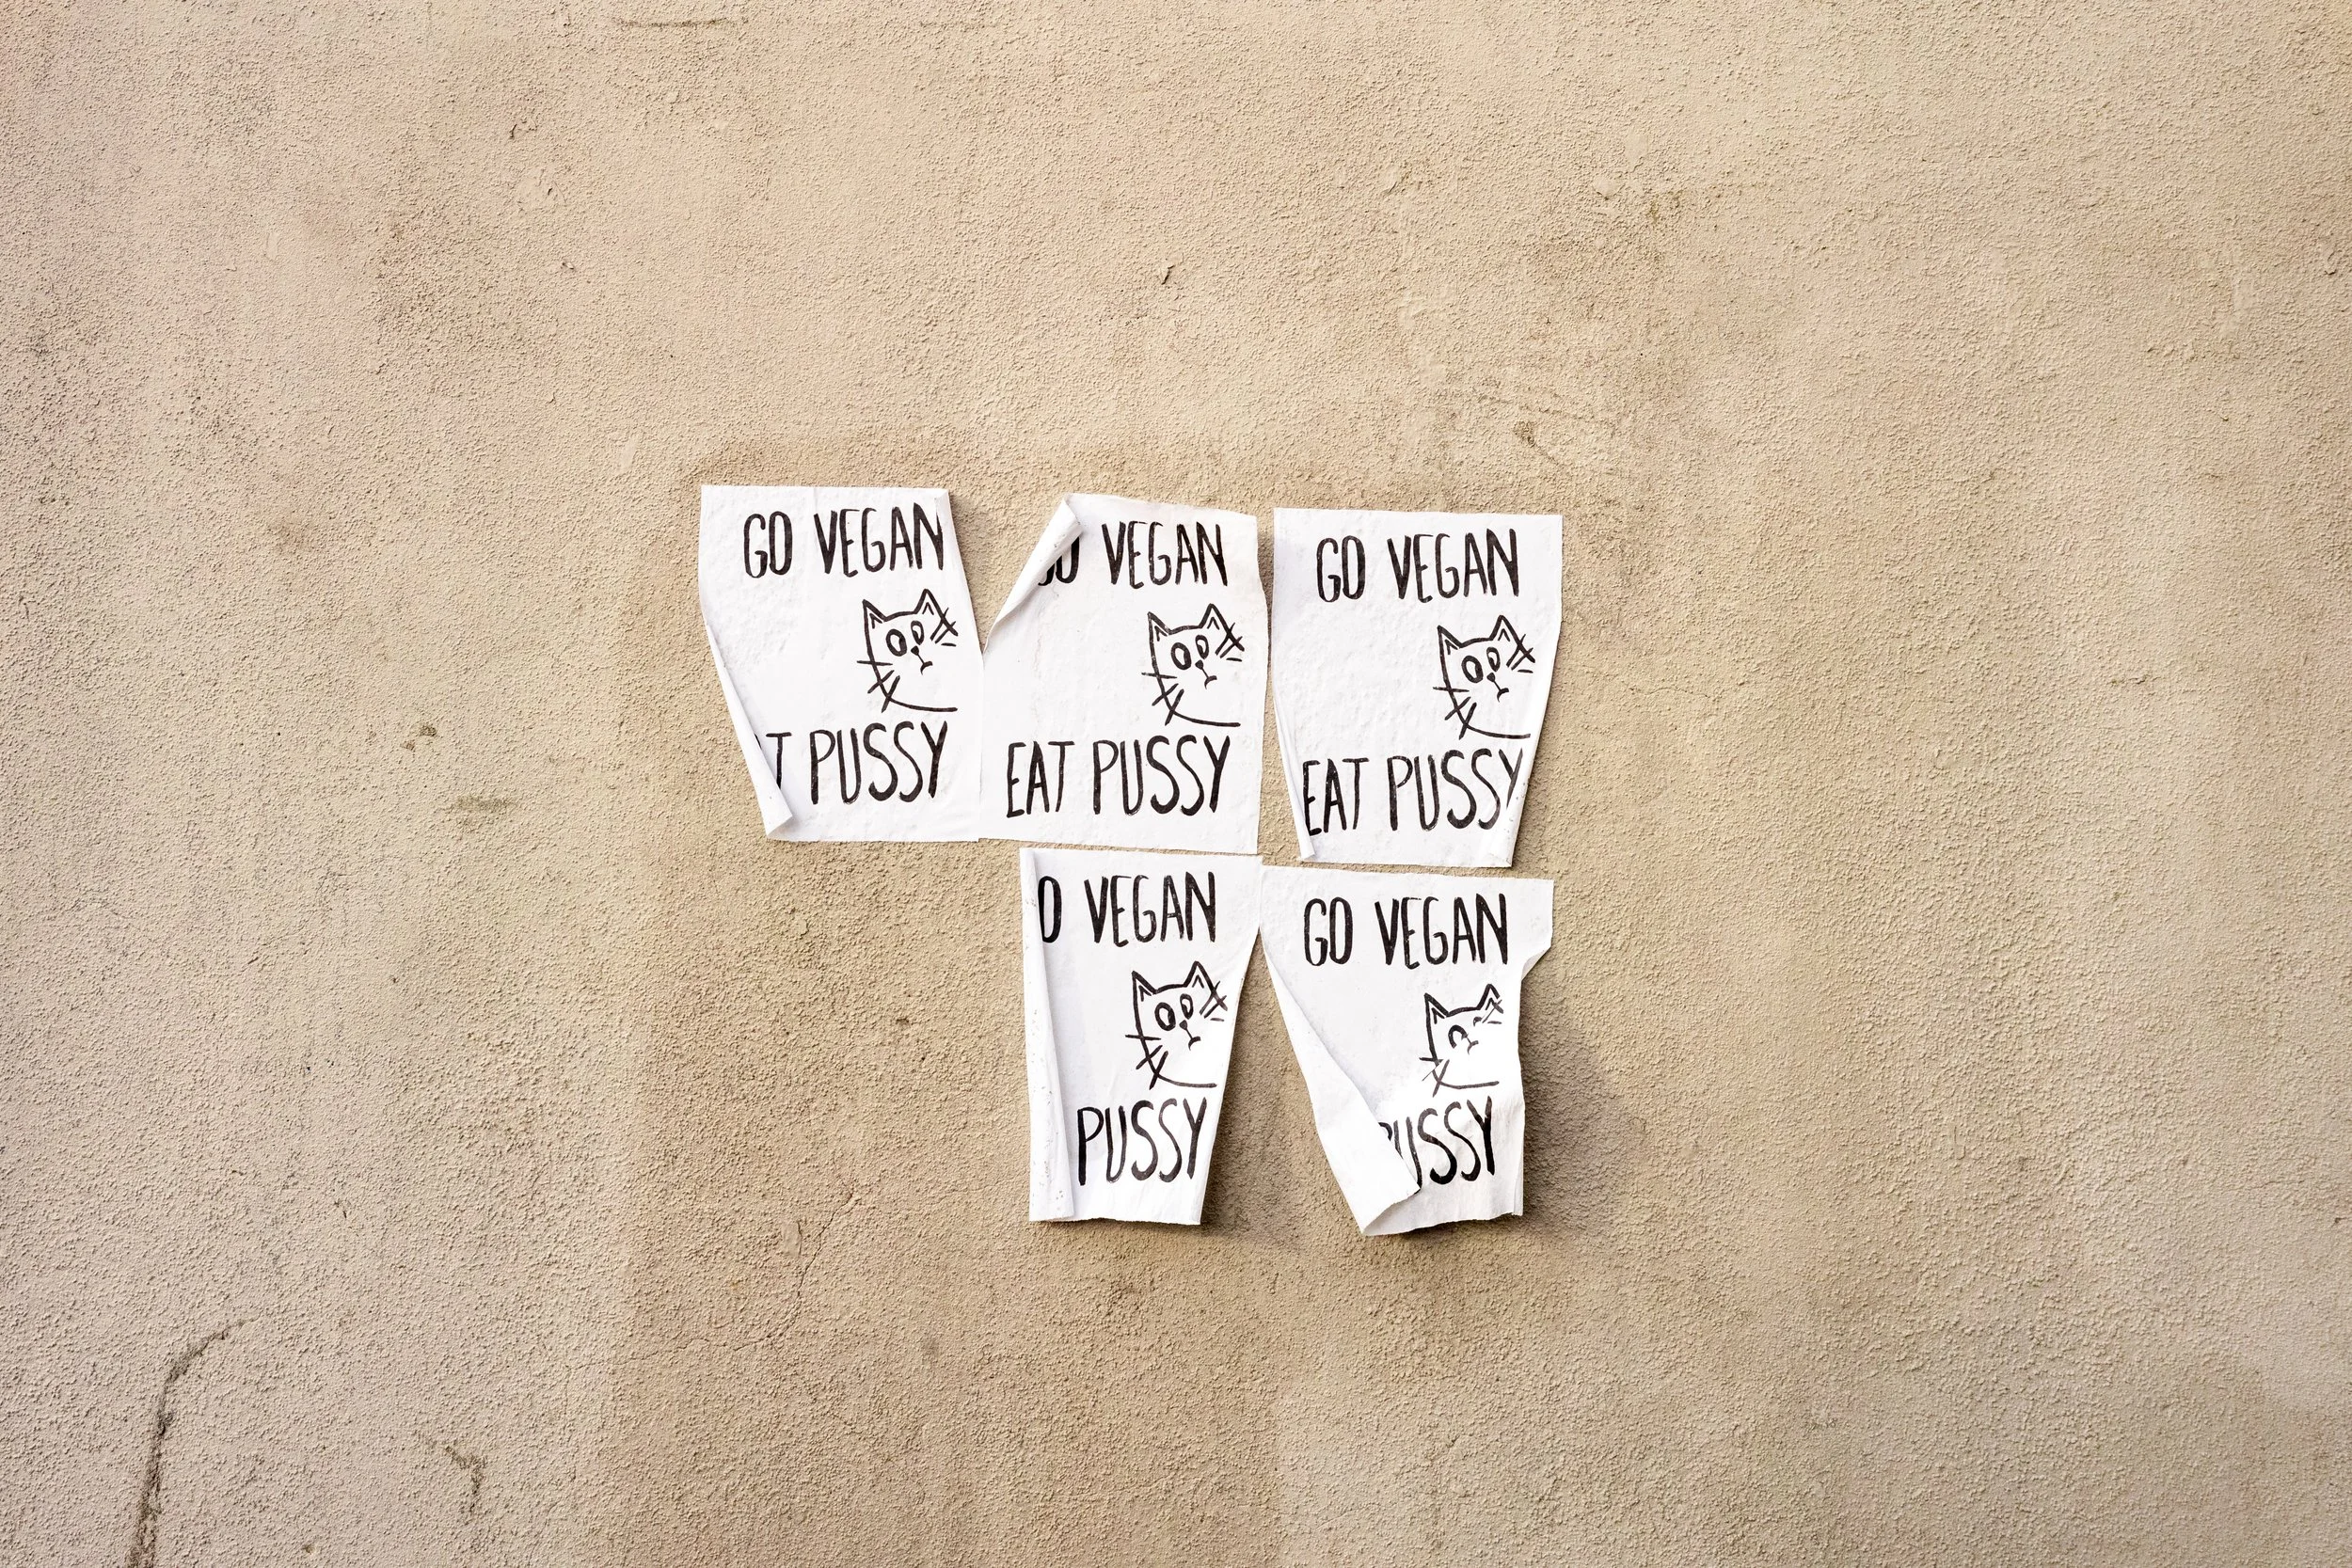 GO VEGAN
T PUSSY
GO VEGAN
EAT PUSSY
GO VEGAN
EAT PUSSY
O VEGAN
PUSSY
GO VEGAN
PUSSY